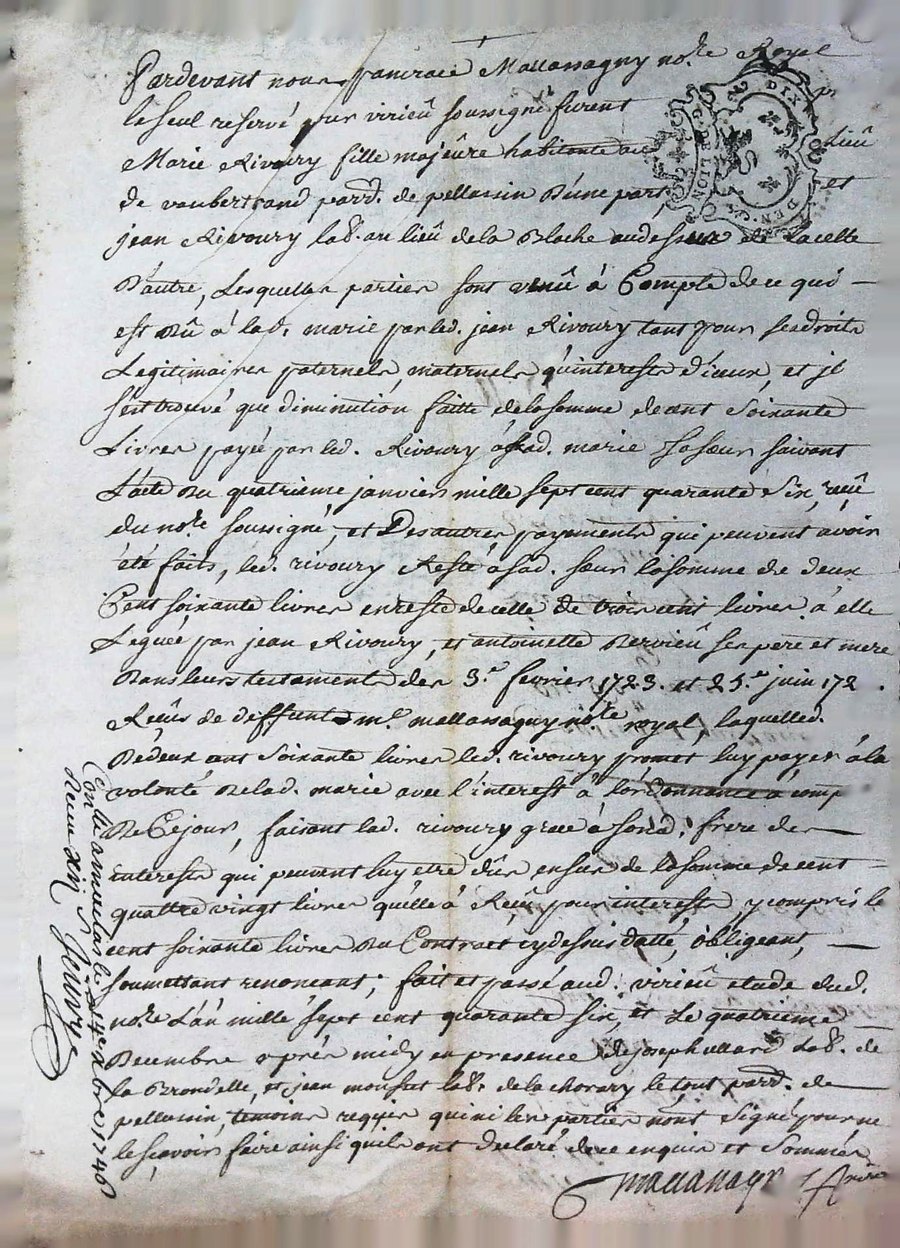 Pardevant nous pancrace Mallassagny no.re Royal
le seul reservé pour virieû soussigné furent
Marie Rivoury fille majeure habitante au lieû
de vaubertrand paroîs. de pellussin D'une part, et
jean Rivoury lab. au lieû de la Blache audessus de Lacelle
D'autre, Lesquelles parties sont venû à Compte de ce qui
est Dû à lad. marie par led. jean Rivoury tant pour ses droits
Legitimaires paternels, maternels qu'interests d'iceux, et jl
s'est trouvé que diminution faitte de la somme de cent Soixante
Livres payé par led. Rivoury à sad. marie sa sœur suivant
L'acte du quatrieme janvier mille sept cent quarante six, reçû
du no.re soussigné, et Des autres payements qui peuvent avoir
été faits, led. rivoury Reste à sad. sœur la somme de deux
Cent soixante livres en reste de celle de trois cent livres à elle
Legué par jean Rivoury, et antoinette Dervieû ses pere et mere
Dans leurs testaments des 3.e fevrier 1723. et 25.e juin 172
Reçûs de deffunt m.e mallassagny no.re royal, laquelled.
De deux cent Soixante livres led. rivoury promet luy payer à la
volonté de lad. marie avec l'interest à l'ordonnance à comp
De Cejour, faisant lad. rivoury grace à sond. frere des
interests qui peuvent luy etre dûs en sus de la somme de cent
quattre vingt livres qu'elle à Reçû pour interests, y compris le
cent soixante livres du Contract cy dessus datté, obligeant,
soumettant renoncant; fait et passé aud. virieû etude dud.
no.re L'an mille sept cent quarante six, et Le quatrieme
Decembre après midy en presence de joseph lab. de
la Brondelle, et jean lab. de la chorary le tout paroîs. de
pellussin, temoins requis qui ni les parties n'ont Signé pour ne
le sçavoir faire ainsi qu'ils ont declaré de ce enquis et Sommés
Mallassagny
Con.lé a le 14 xbre 1746
Receu xii s
DIX DEN
LION